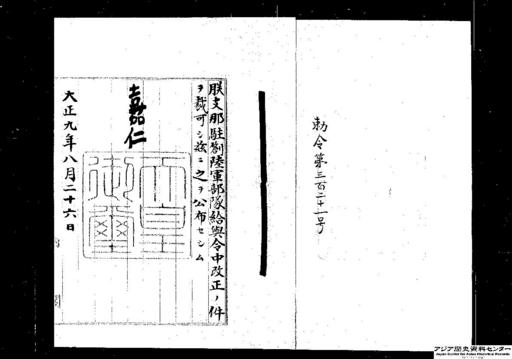 勅令第三百二十一号
朕支那駐劄陸軍部隊給与令中改正ノ件
ヲ裁可シ茲ニ之ヲ公布セシム
嘉仁
天皇御璽
大正九年八月二十六日
アジア歴史資料センター
Japan Center for Asian Historical Records